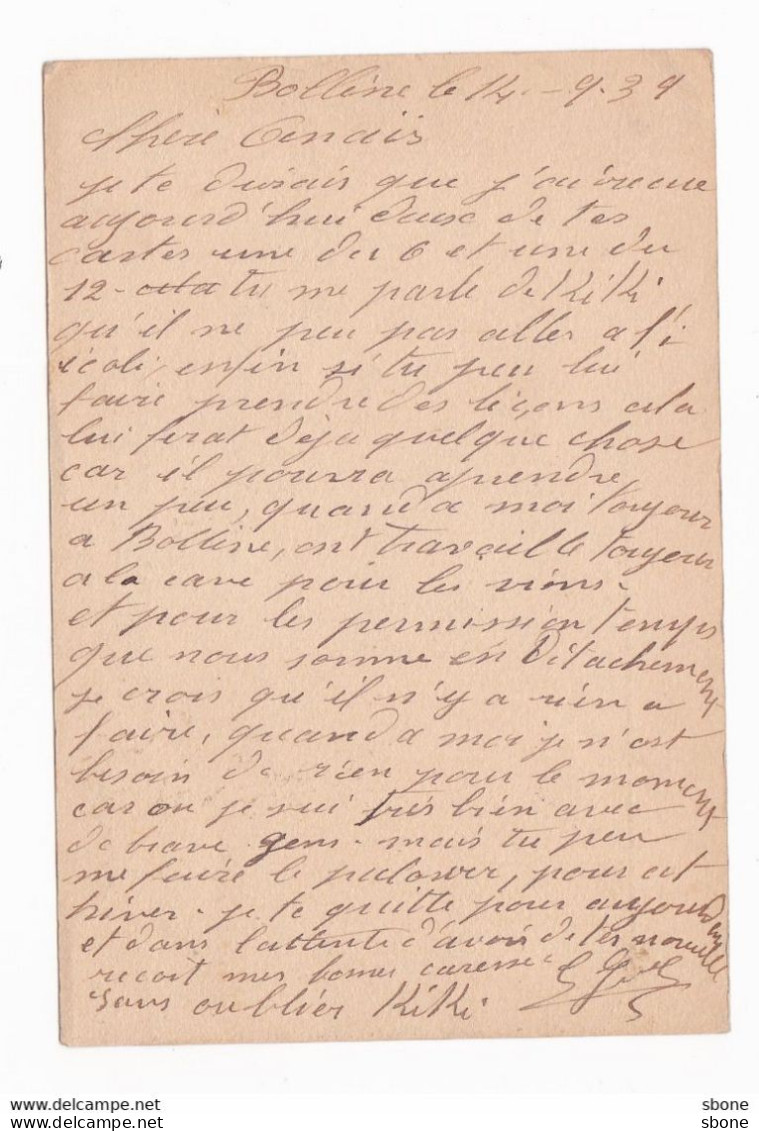 Bollène le 14 - 9 - 39
Chère Anaïs
je te dirais que j'ai reçue
aujourd'hui deux de tes
cartes une du 6 et une du
12 - tu me parle de KiKi
qu'il ne peu pas aller a l'é
école, enfin si tu peu lui
faire prendre des leçons cela
lui ferat deja quelque chose
car il pourra aprendre
un peu, quand a moi toujour
a Bollène, ont travaille toujour
a la cave pour les vions -
et pour les permission temps
que nous somme en Détachement
je crois qu'il n'y a rien a
faire, quand a moi je n'est
besoin de rien pour le moment
car ou je sui très bien avec
de brave gens - mais tu peu
me faire le pulower, pour cet
hiver - je te quitte pour aujourd'hui
et dans l'attente d'avoir de tes nouvelle
recoit mes bonnes caresse
sans oublier KiKi
sbone
sbone
https://www.delcampe.net
https://www.delcampe.net